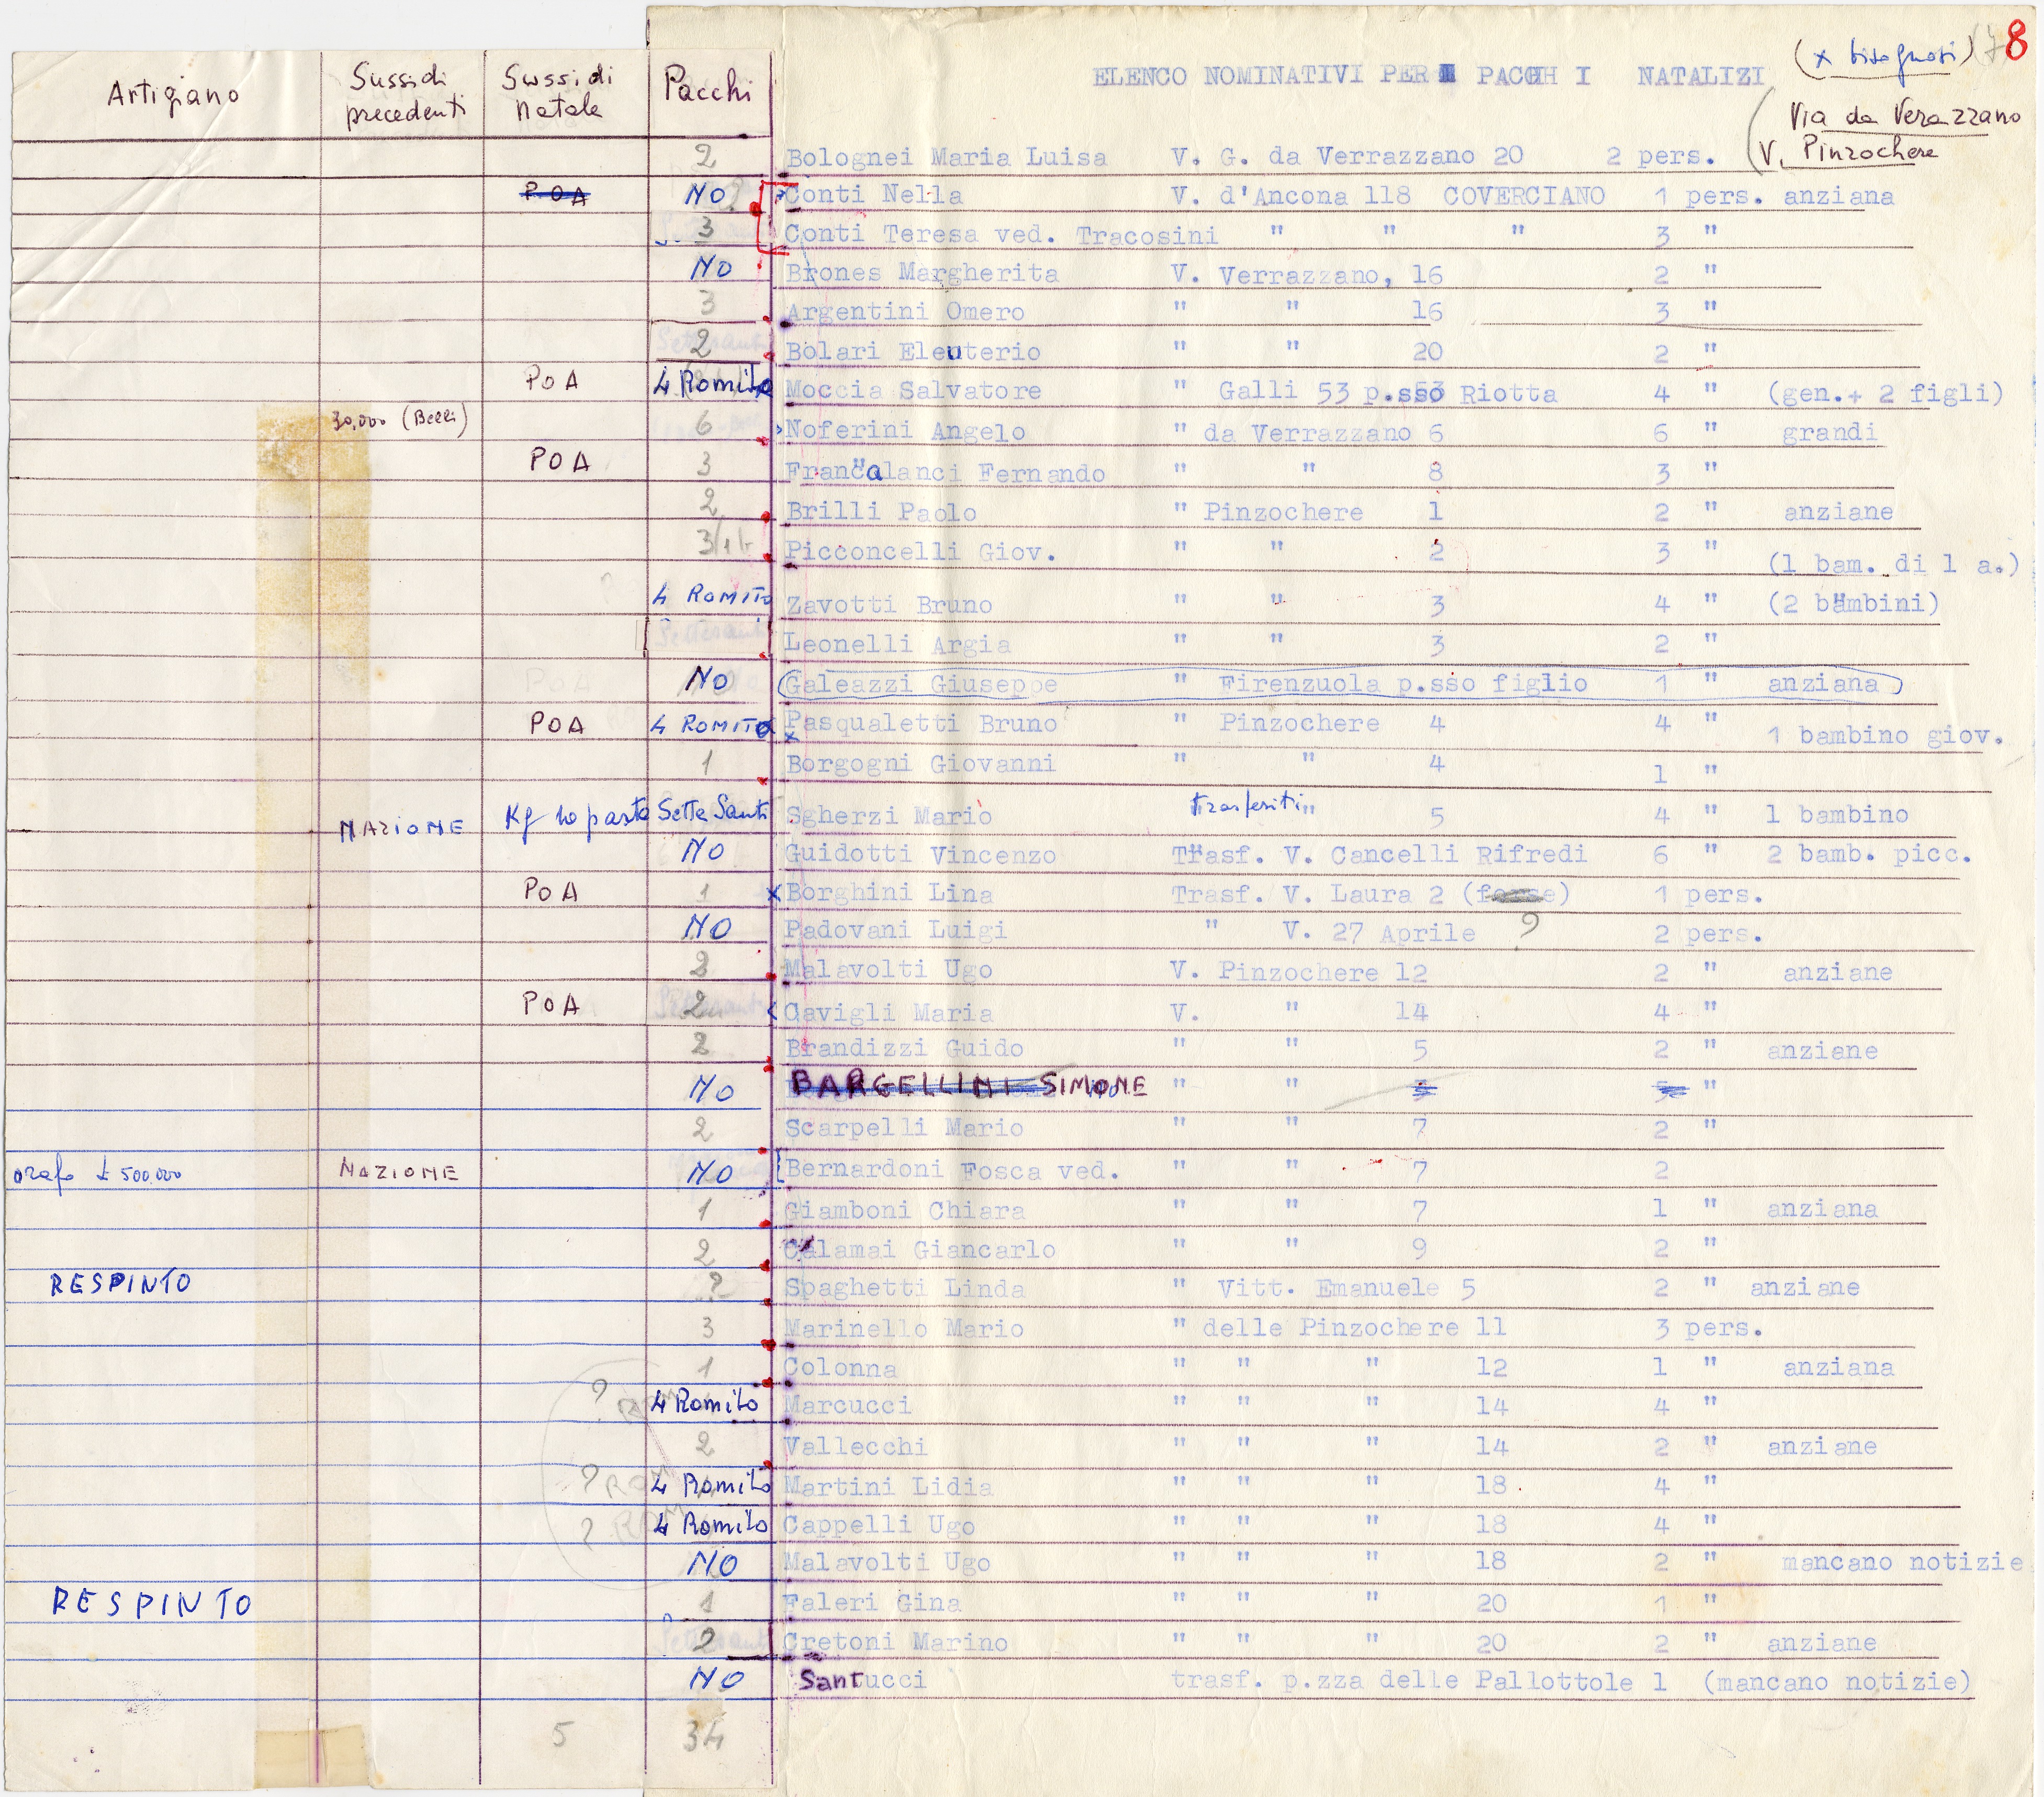 (x bisognosi) 78
ELENCO NOMINATIVI PER PACCHI NATALIZI
(Via da Verazzano
V. Pinzochere
Artigiano Sussidi precedenti Sussidi Natale Pacchi
2 Bolognei Maria Luisa V. G. da Verrazzano 20 2 pers.
POA NO Conti Nella V. d'Ancona 118 COVERCIANO 1 pers. anziana
3 Conti Teresa ved. Tracosini " " " 3 "
NO Brones Margherita V. Verrazzano, 16 2 "
3 Argentini Omero " " 16 3 "
2 Bolari Eleuterio " " 20 2 "
POA 4 Romito Moccia Salvatore " Galli 53 p.sso Riotta 4 " (gen.+ 2 figli)
30.000 (Belli) 6 Noferini Angelo " da Verrazzano 6 6 " grandi
POA 3 Francalanci Fernando " " 8 3 "
2 Brilli Paolo " Pinzochere 1 2 " anziane
3 Picconcelli Giov. " " 2 3 " (1 bam. di 1 a.)
4 ROMITO Zavotti Bruno " " 3 4 " (2 bambini)
Leonelli Argia " " 3 2 "
NO (Galeazzi Giuseppe " Firenzuola p.sso figlio 1 " anziana)
POA 4 ROMITO x Pasqualetti Bruno " Pinzochere 4 4 " 1 bambino giov.
1 Borgogni Giovanni " " 4 1 "
NAZIONE Kg 10 pasta Sette Santi Sgherzi Mario trasferiti " 5 4 " 1 bambino
NO Guidotti Vincenzo Trasf. V. Cancelli Rifredi 6 " 2 bamb. picc.
POA 1 x Borghini Lina Trasf. V. Laura 2 (forse) 1 pers.
NO Padovani Luigi " V. 27 Aprile ? 2 pers.
2 Malavolti Ugo V. Pinzochere 12 2 " anziane
POA 2 Cavigli Maria V. " 14 4 "
2 Brandizzi Guido " " 5 2 " anziane
NO BARGELLINI SIMONE " " 5 5 "
2 Scarpelli Mario " " 7 2 "
orafo £ 500.000 NAZIONE NO Bernardoni Fosca ved. " " 7 2
1 Giamboni Chiara " " 7 1 " anziana
2 Calamai Giancarlo " " 9 2 "
RESPINTO ? Spaghetti Linda " Vitt. Emanuele 5 2 " anziane
3 Marinello Mario " delle Pinzochere 11 3 pers.
1 Colonna " " " 12 1 " anziana
? 4 Romito Marcucci " " " 14 4 "
2 Vallecchi " " " 14 2 " anziane
? 4 Romito Martini Lidia " " " 18 4 "
? 4 Romito Cappelli Ugo " " " 18 4 "
NO Malavolti Ugo " " " 18 2 " mancano notizie
RESPINTO 1 Faleri Gina " " " 20 1 "
2 Cretoni Marino " " " 20 2 " anziane
NO Santucci trasf. p.zza delle Pallottole 1 (mancano notizie)
5 34